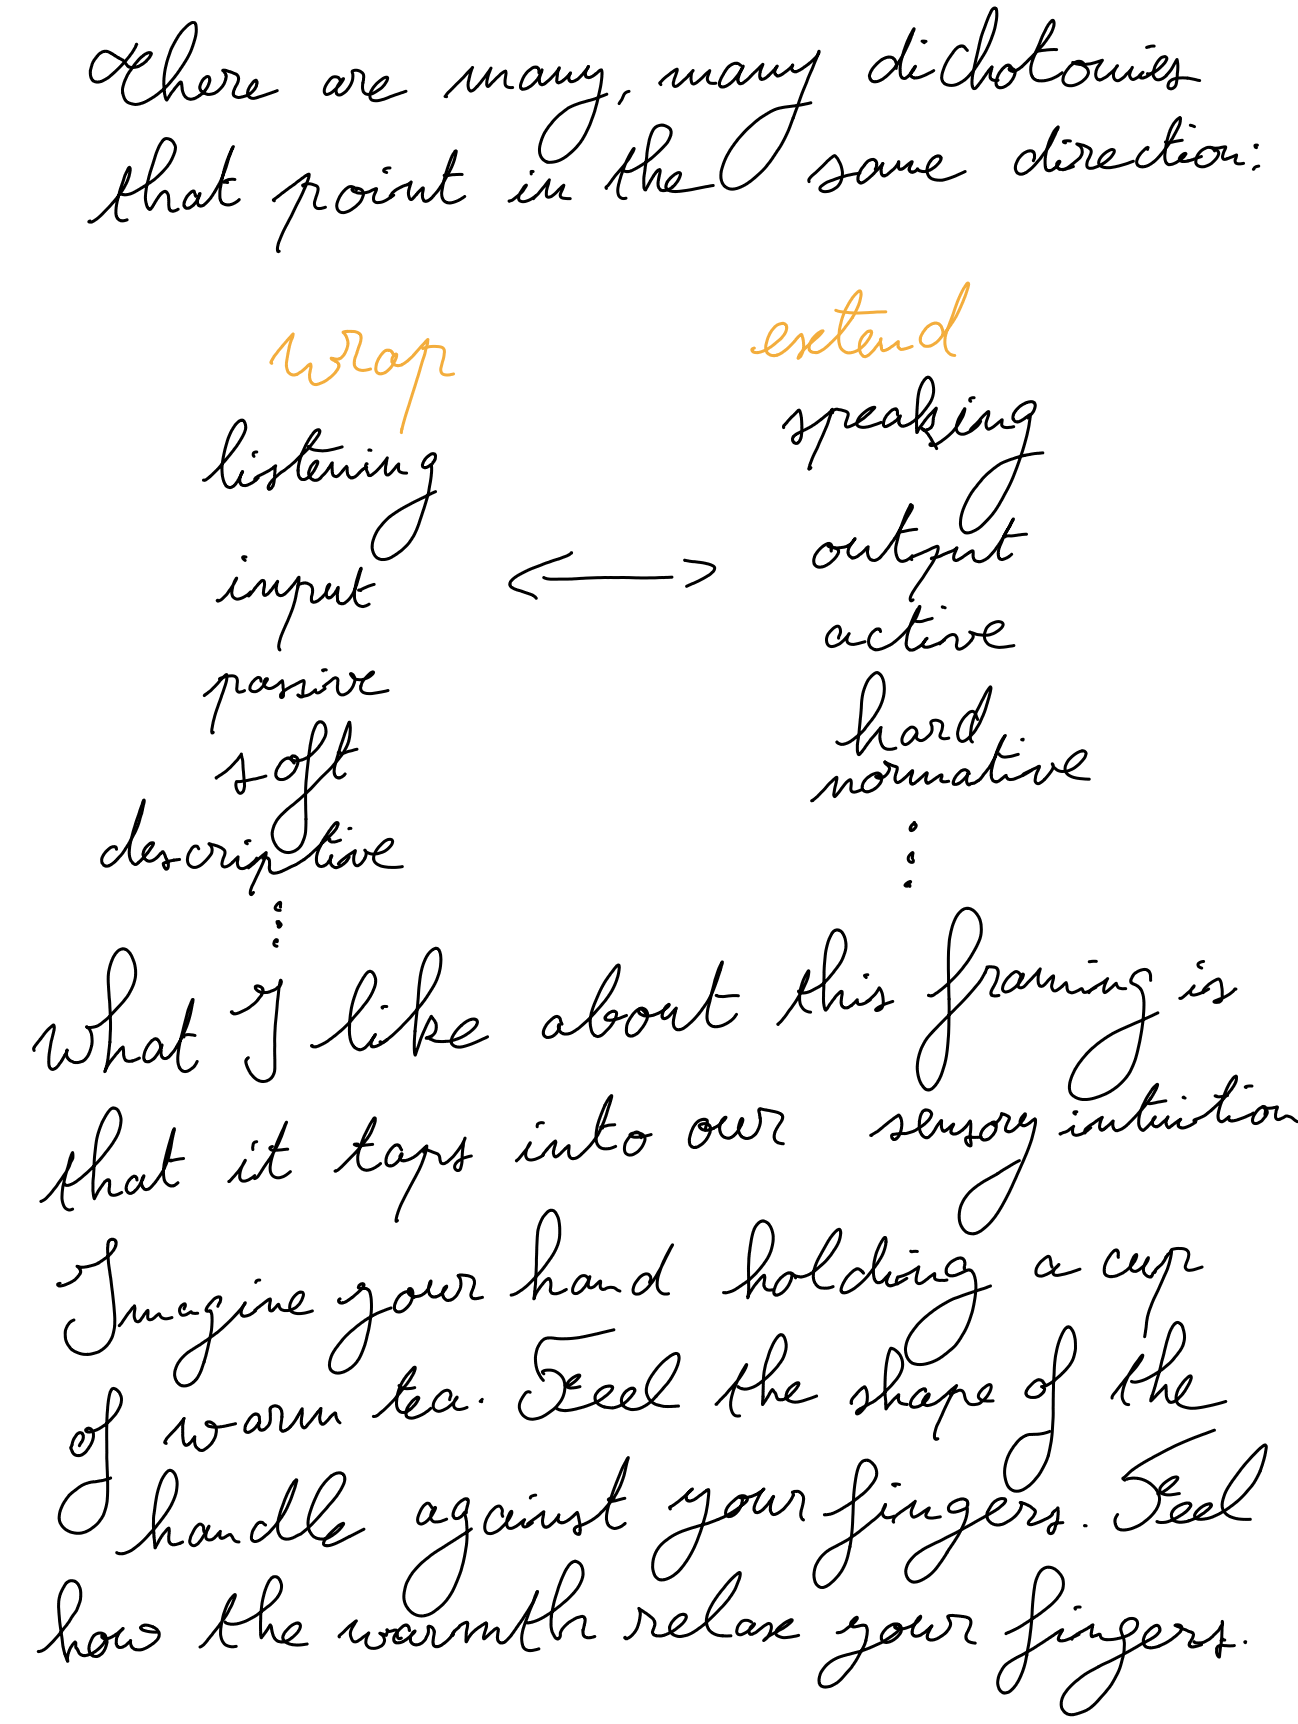 There are many, many dichotomies
that point in the same direction:
wrap
extend
listening
speaking
input
output
passive
active
soft
hard
descriptive
normative
What I like about this framing is
that it taps into our sensory intuition
Imagine your hand holding a cup
of warm tea. Feel the shape of the
handle against your fingers. Feel
how the warmth relax your fingers.